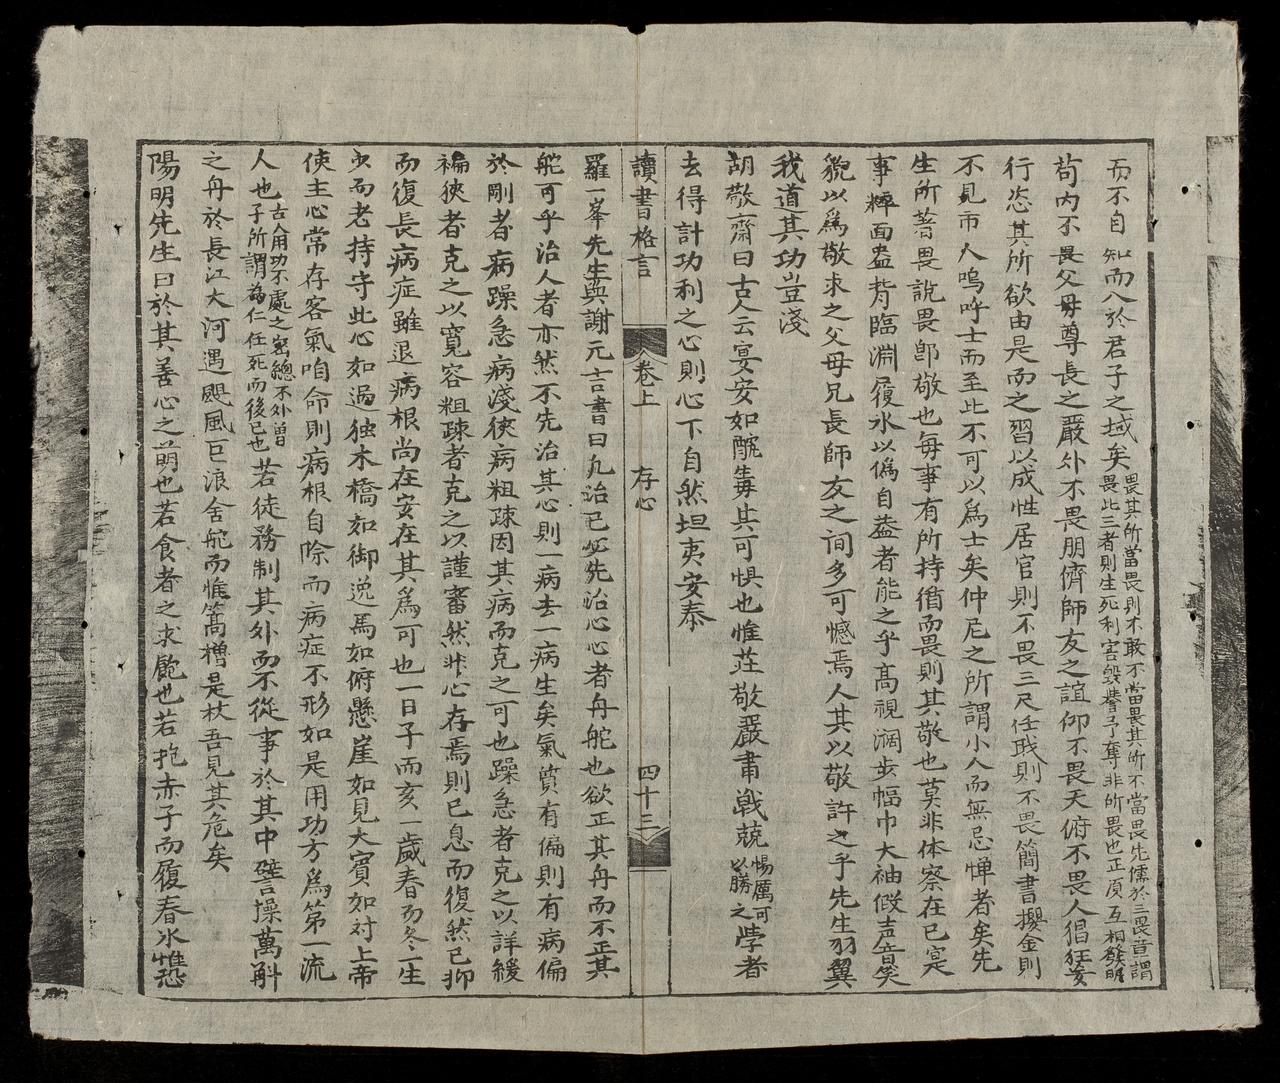 而不自知而入於君子之域矣畏其所當畏則不敢不當畏其所不當畏先儒於三畏章謂畏此三者則生死利害毀譽予奪非所畏也正頂互相發明
苟内不畏父母尊長之嚴外不畏朋儕師友之誼仰不畏天俯不畏人猖狂妄
行恣其所欲由是而之習以成性居官則不畏三尺任戢則不畏簡書攫金則
不見市人嗚呼士而至此不可以爲士矣仲尼之所謂小人而無忌憚者矣先
生所著畏說畏卽敬也每事有所持循而畏則其敬也莫非体察在已寔
事粹面盎背臨淵履氷以僞自葢者能之乎髙視濶步幅巾大袖假声音笑
貌以爲敬求之父母兄長師友之间多可憾焉人其以敬許之乎先生羽翼
我道其功豈淺
胡敬齋曰古人云宴安如酖毒其可惧也惟莊敬嚴肅戰兢惕厲可以勝之學者
去得計功利之心則心下自然坦夷安泰
讀書格言 卷上 存心 四十三
羅一峯先生與謝元吉書曰凢治已必先治心心者舟舵也欲正其舟而不正其
舵可乎治人者亦然不先治其心則一病去一病生矣氣質有偏則有病偏
於剛者病躁急病淺狹病粗疎因其病而克之可也躁急者克之以詳緩
褊狹者克之以寬容粗疎者克之以謹審然非心存焉則已息而復然已抑
而復長病症雖退病根尚在安在其爲可也一日子而亥一歲春而冬一生
少而老持守此心如過独木橋如御逸馬如俯懸崖如見大賓如对上帝
使主心常存客氣咱命則病根自除而病症不形如是用功方爲第一流
人也古人用功不處之密總不外曾子所謂為仁任死而後已也若徒務制其外而不從事於其中譬操萬斛
之舟於長江大河遇颶風巨浪舍舵而惟篙櫓是杖吾見其危矣
陽明先生曰於其善心之萌也若食者之求飽也若抱赤子而履春冰惟恐